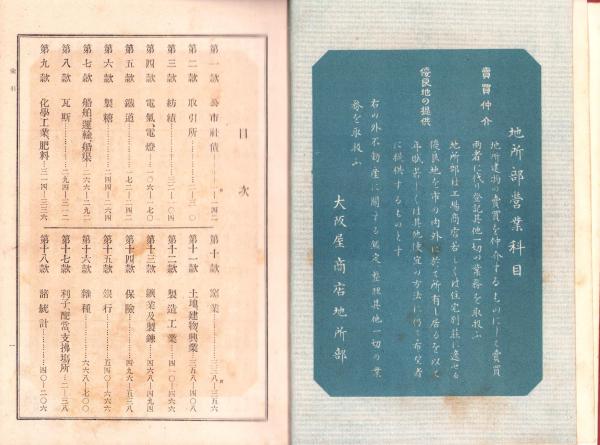 地所部營業科目
賣買仲介
地所建物の賣買を仲介するものにして賣買
兩者に代り登記其他一切の業務を取扱ふ
優良地の提供
地所部は工場商店若しくは住宅別莊に適せる
優良地を市の内外に於て所有し居るを以て
年賦若しくは其他便宜の方法に仍り希望者
に提供するものとす
右の外不動産に關する鑑定、整理其他一切の業
務を取扱ふ
大阪屋商店地所部
目次
第一款 公市社債
第二款 取引所
第三款 紡績
第四款 電氣、電燈 一〇六―一七〇
第五款 鐵道 一七二―二四二
第六款 製糖 二四四―二六四
第七款 船舶運輸、船渠 二六六―二九二
第八款 瓦斯 二九四―三一二
第九款 化學工業、肥料 三一四―三三六
第十款 窯業 三三八―三五六
第十一款 土地、建物、興業 三五八―四〇八
第十二款 製造工業 四一〇―四六六
第十三款 鑛業及製錬 四六八―四九四
第十四款 保險 四九六―五三八
第十五款 銀行 五四〇―六六六
第十六款 雜種 六六八―七〇〇
第十七款 利子、配當、支拂場所 二―三八
第十八款 諸統計 四〇―二〇六
一